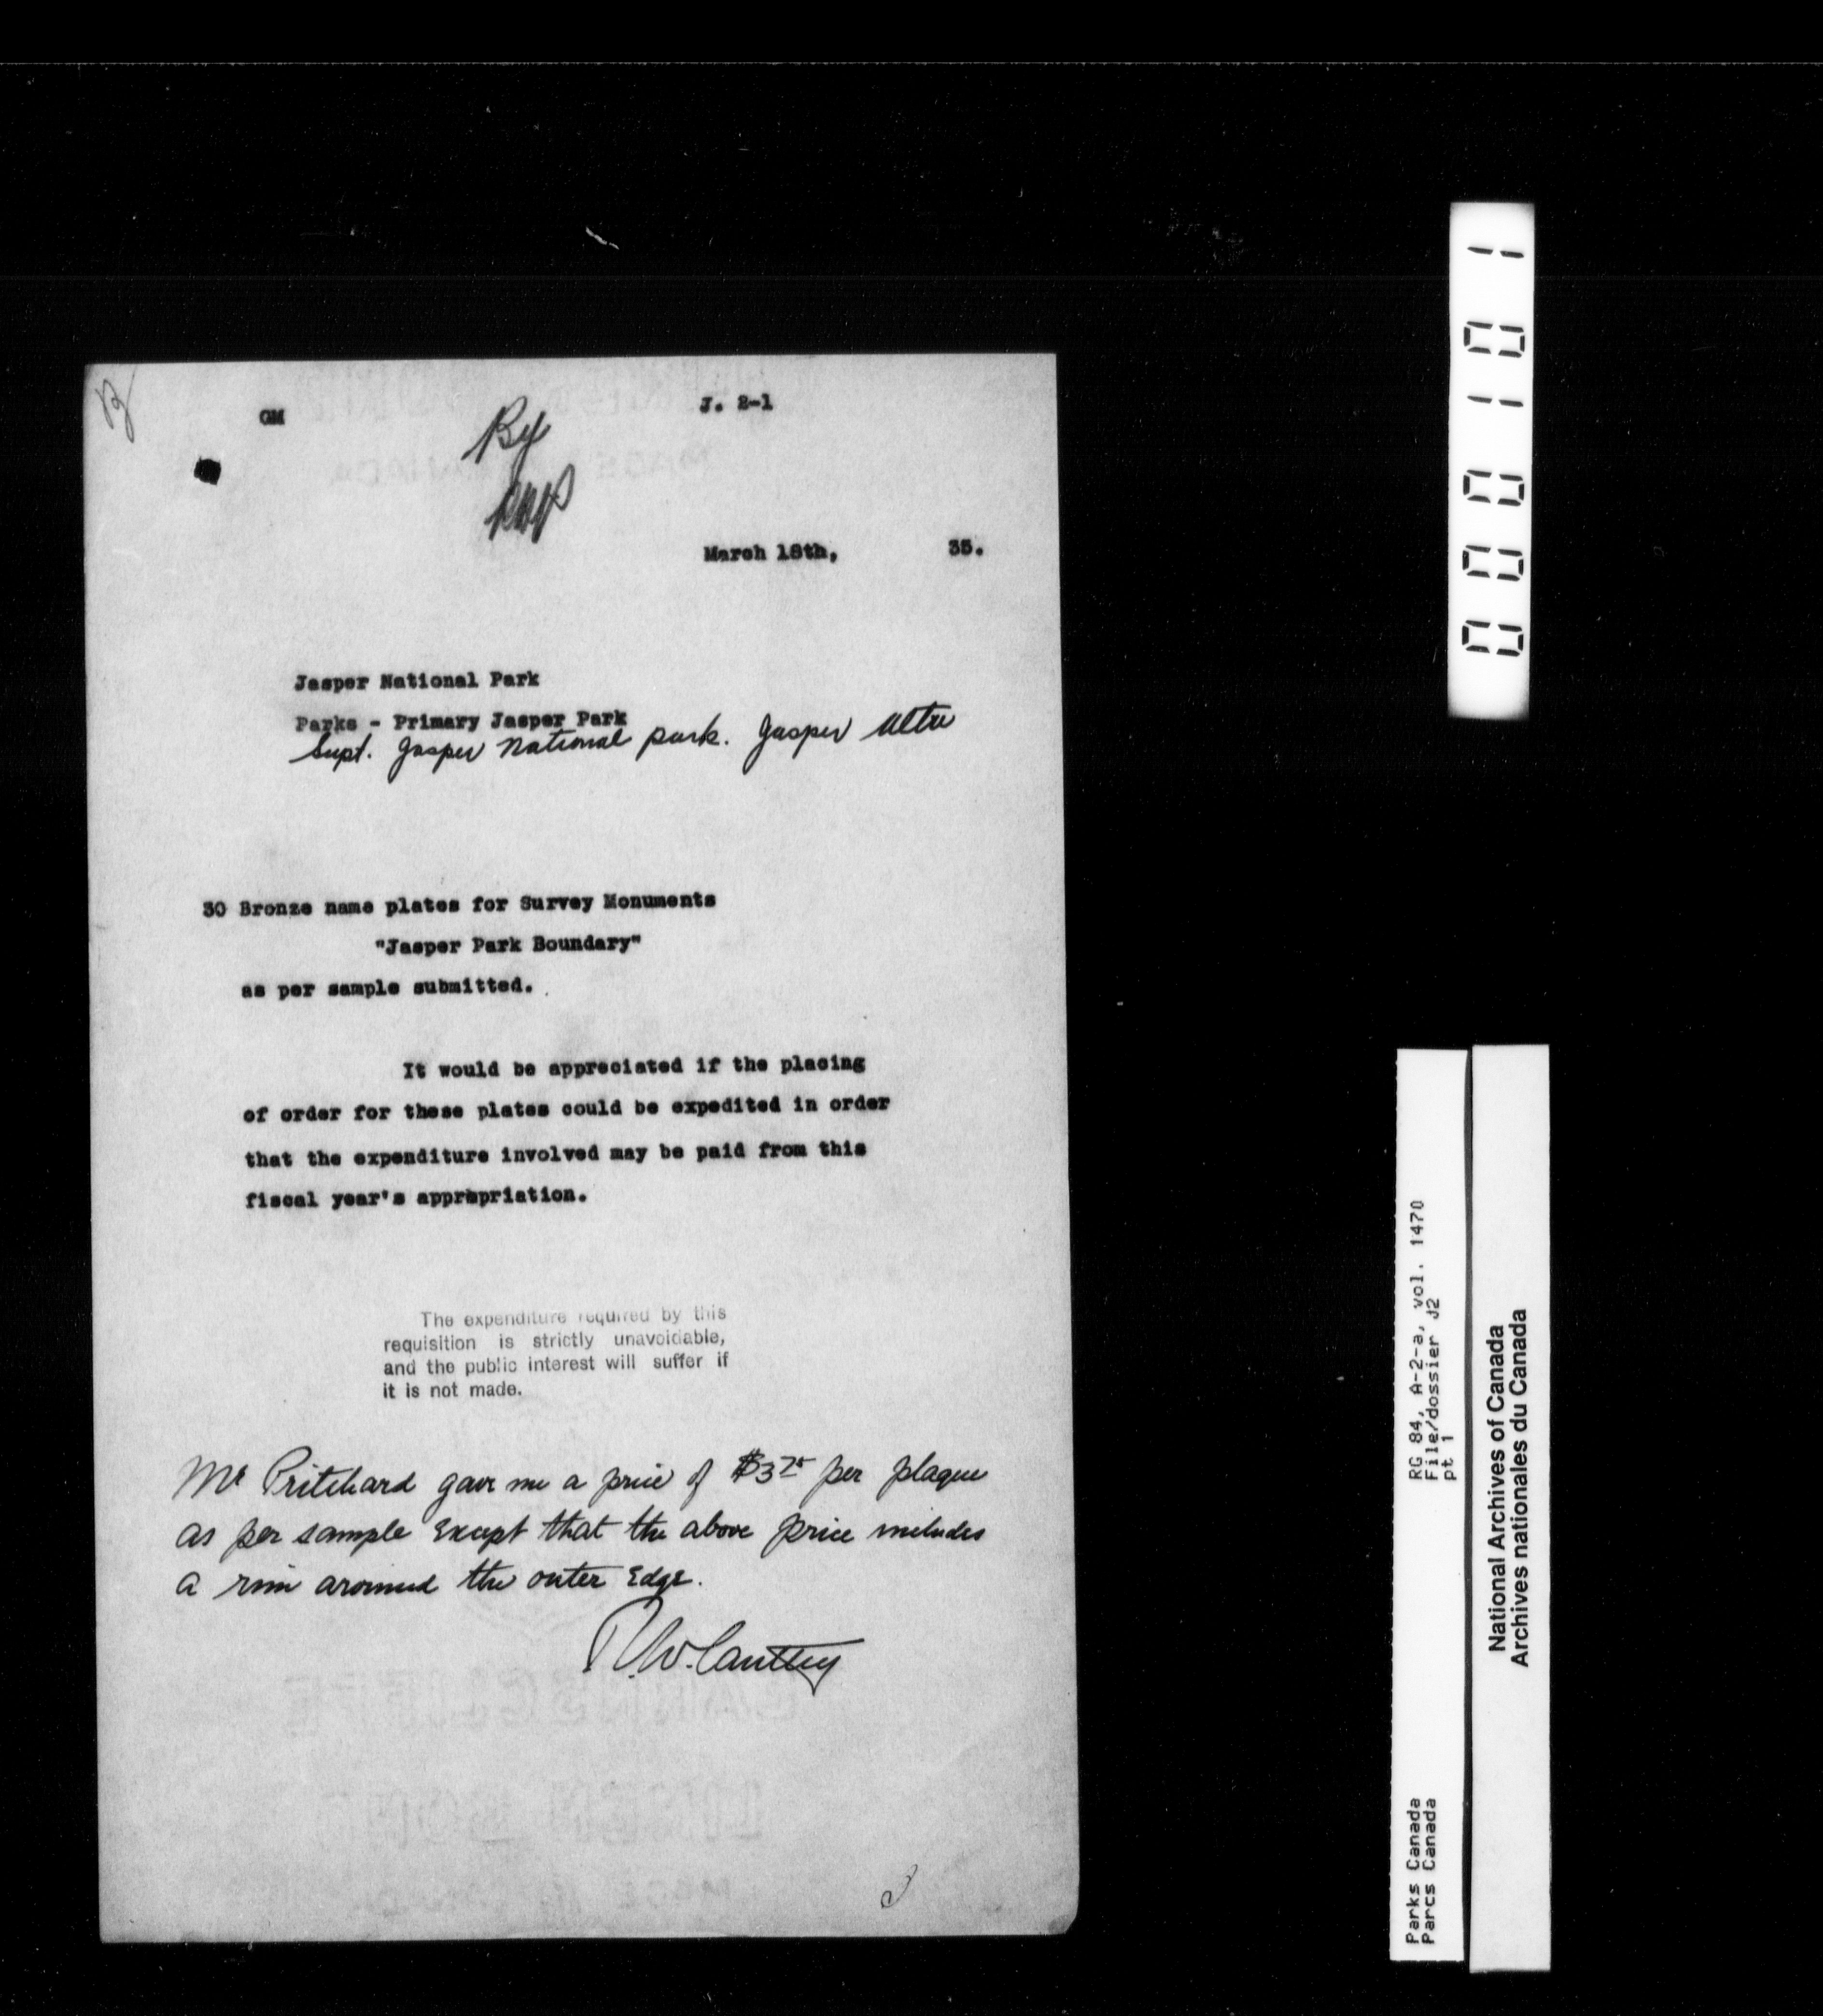 GM
J. 2-1
By
March 18th, 35.
Jasper National Park
Parks - Primary Jasper Park
Supt. Jasper National park. Jasper Alta
30 Bronze name plates for Survey Monuments
"Jasper Park Boundary"
as per sample submitted.
It would be appreciated if the placing
of order for these plates could be expedited in order
that the expenditure involved may be paid from this
fiscal year's appropriation.
The expenditure required by this
requisition is strictly unavoidable,
and the public interest will suffer if
it is not made.
Mr Pritchard gave me a price of $3 per plaque
as per sample Except that the above price includes
a rim around the outer Edge.
000101
RG 84, A-2-a, vol. 1470
File/dossier J2
pt 1
Parks Canada
Parcs Canada
National Archives of Canada
Archives nationales du Canada